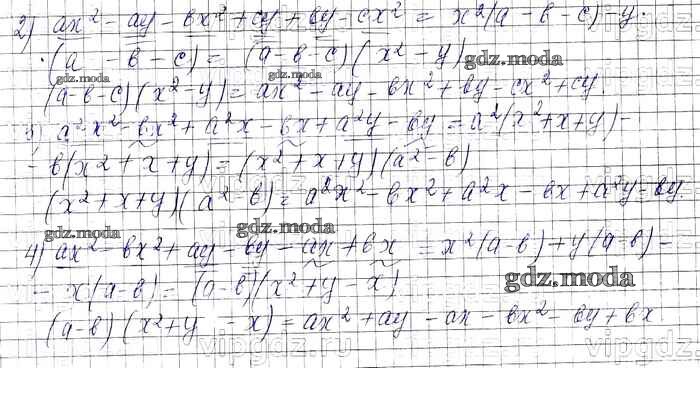 2) ax² - ay - bx² + cy + by - cx² = x²(a - b - c) - y·
·(a - b - c) = (a - b - c)(x² - y)
gdz.moda gdz.moda
(a-b-c)(x²-y) = ax² - ay - bx² + by - cx² + cy.
3) a²x² - bx² + a²x - bx + a²y - by = a²(x²+x+y) -
- b(x²+x+y) = (x²+x+y)(a²-b)
(x²+x+y)(a²-b) = a²x² - bx² + a²x - bx + a²y - by.
gdz.moda gdz.moda
4) ax² - bx² + ay - by - ax + bx = x²(a-b) + y(a-b) -
- x(a-b) = (a-b)(x²+y x)
gdz.moda
(a-b)(x²+y - x) = ax² + ay - ax - bx² - by + bx
vipgdz.ru vipgdz